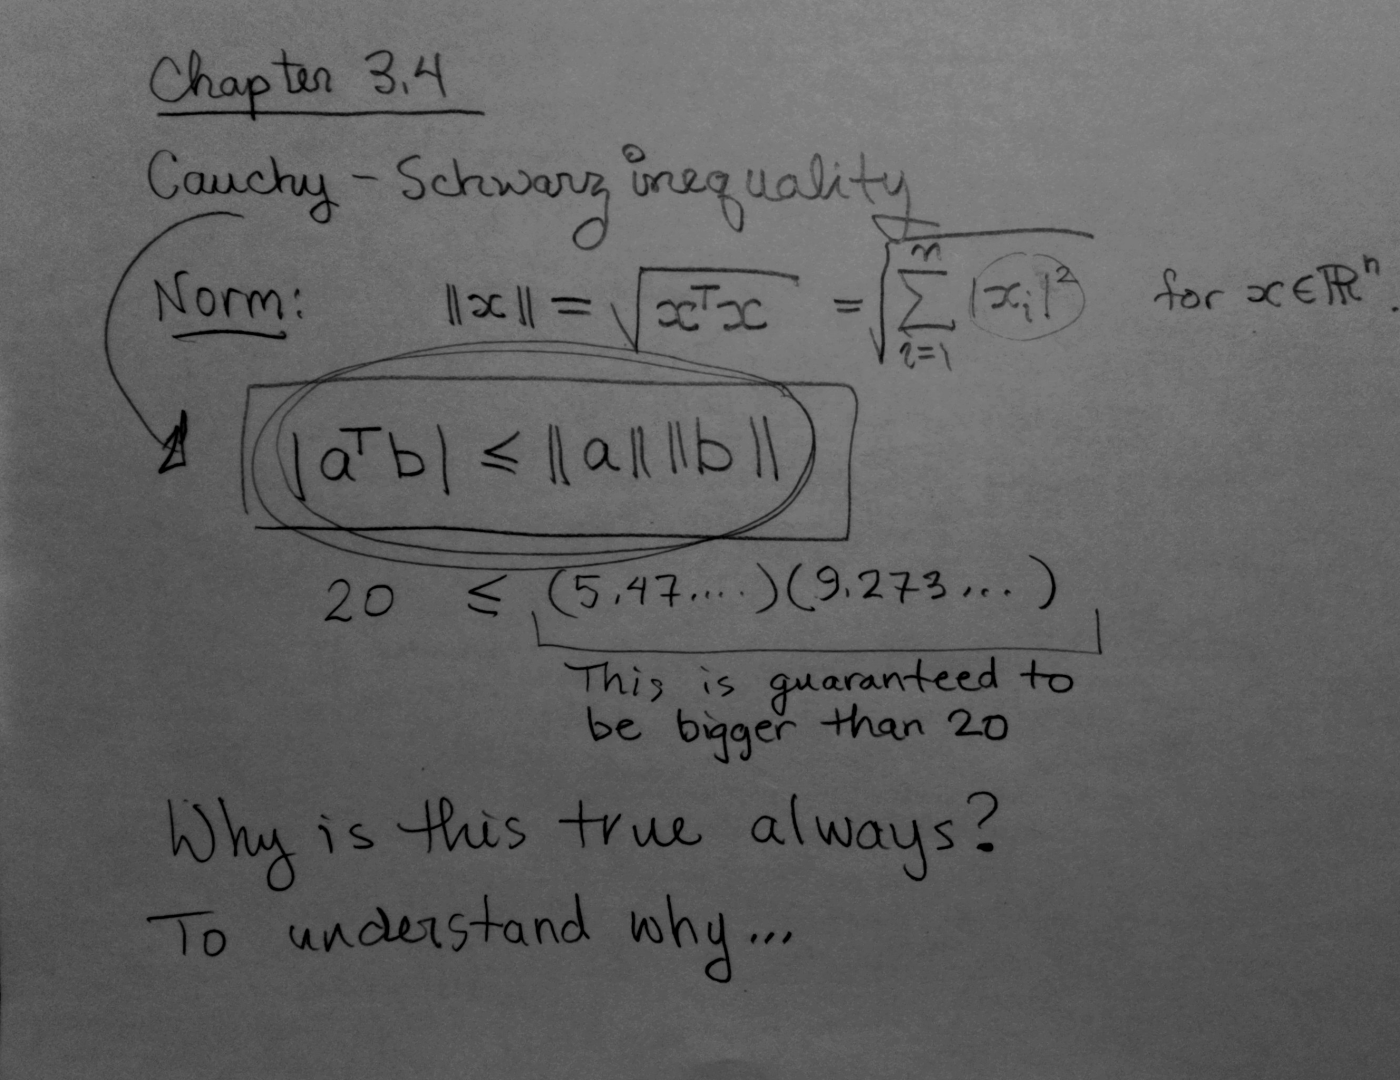 Chapter 3.4
Cauchy - Schwarz inequality
Norm: ||x|| = √(xᵀx) = √(∑ᵢ₌₁ⁿ |xᵢ|²) for x ∈ ℝⁿ.
|aᵀb| ≤ ||a|| ||b||
20 ≤ (5.47....)(9.273...)
This is guaranteed to
be bigger than 20
Why is this true always?
To understand why...